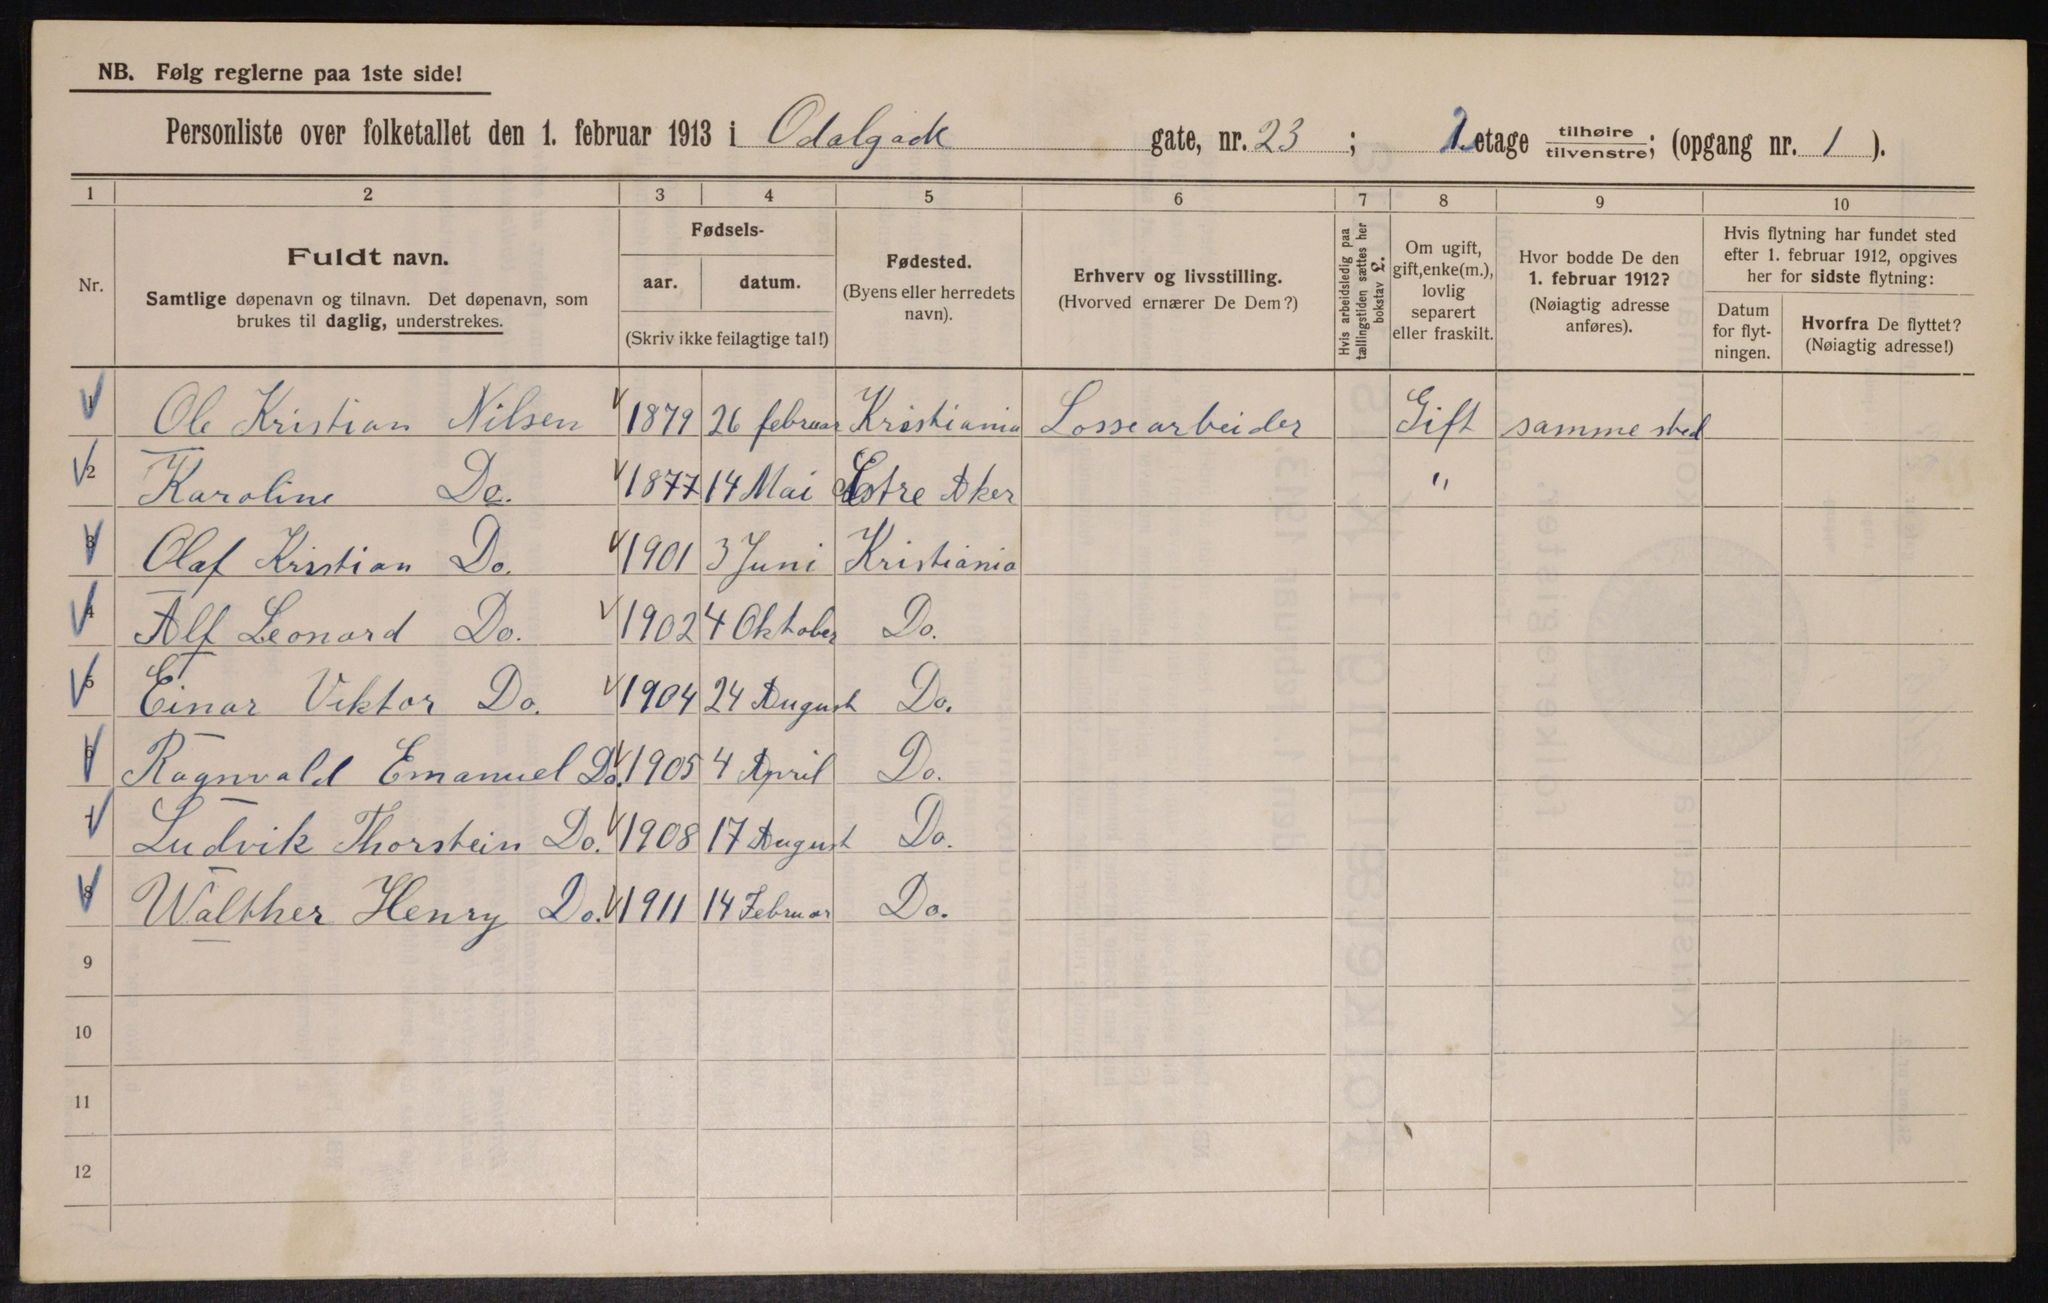 NB. Følg reglerne paa 1ste side!
Personliste over folketallet den 1. februar 1913 i Odalgack gate, nr. 23 ; etage tilhøire tilvenstre; (opgang nr. 1 ).
1 2 3 4 5 6 7 8 9 10
Nr.
Fuldt navn.
Samtlige døpenavn og tilnavn. Det døpenavn, som
brukes til daglig, understrekes.
Fødsels-
aar. datum.
(Skriv ikke feilagtige tal!)
Fødested.
(Byens eller herredets
navn).
Erhverv og livsstilling.
(Hvorved ernærer De Dem?)
Hvis arbeidsledig paa
tællingstiden sættes her
bokstav L.
Om ugift,
gift, enke(m.),
lovlig
separert
eller fraskilt.
Hvor bodde De den
1. februar 1912?
(Nøiagtig adresse
anføres).
Hvis flytning har fundet sted
efter 1. februar 1912, opgives
her for sidste flytning:
Datum
for flyt-
ningen.
Hvorfra De flyttet?
(Nøiagtig adresse!)
1 Ole Kristian Nilsen 1879 26 februar Kristiania Lossearbeider Gift samme sted
2 Karoline Do. 1877 14 Mai Østre Aker "
3 Olaf Kristian Do. 1901 3 Juni Kristiania
4 Alf Leonard Do. 1902 4 Oktober Do.
5 Einar Viktor Do. 1904 24 August Do.
6 Ragnvald Emanuel Do. 1905 4 April Do.
7 Ludvik Thorstein Do. 1908 17 August Do.
8 Walther Henry Do. 1911 14 Februar Do.
9
10
11
12